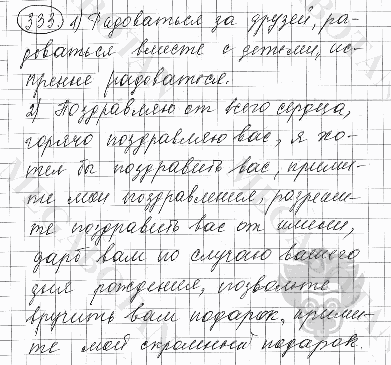 333 1) Радоваться за друзей, ра-
доваться вместе с детьми, ис-
кренне радоваться.
2) Поздравляю от всего сердца,
горячо поздравляю вас, я хо-
тел бы поздравить вас, прими-
те мои поздравления, разреши-
те поздравить вас от имени,
дарю вам по случаю вашего
дня рождения, позвольте
вручить вам подарок, прими-
те мой скромный подарок.